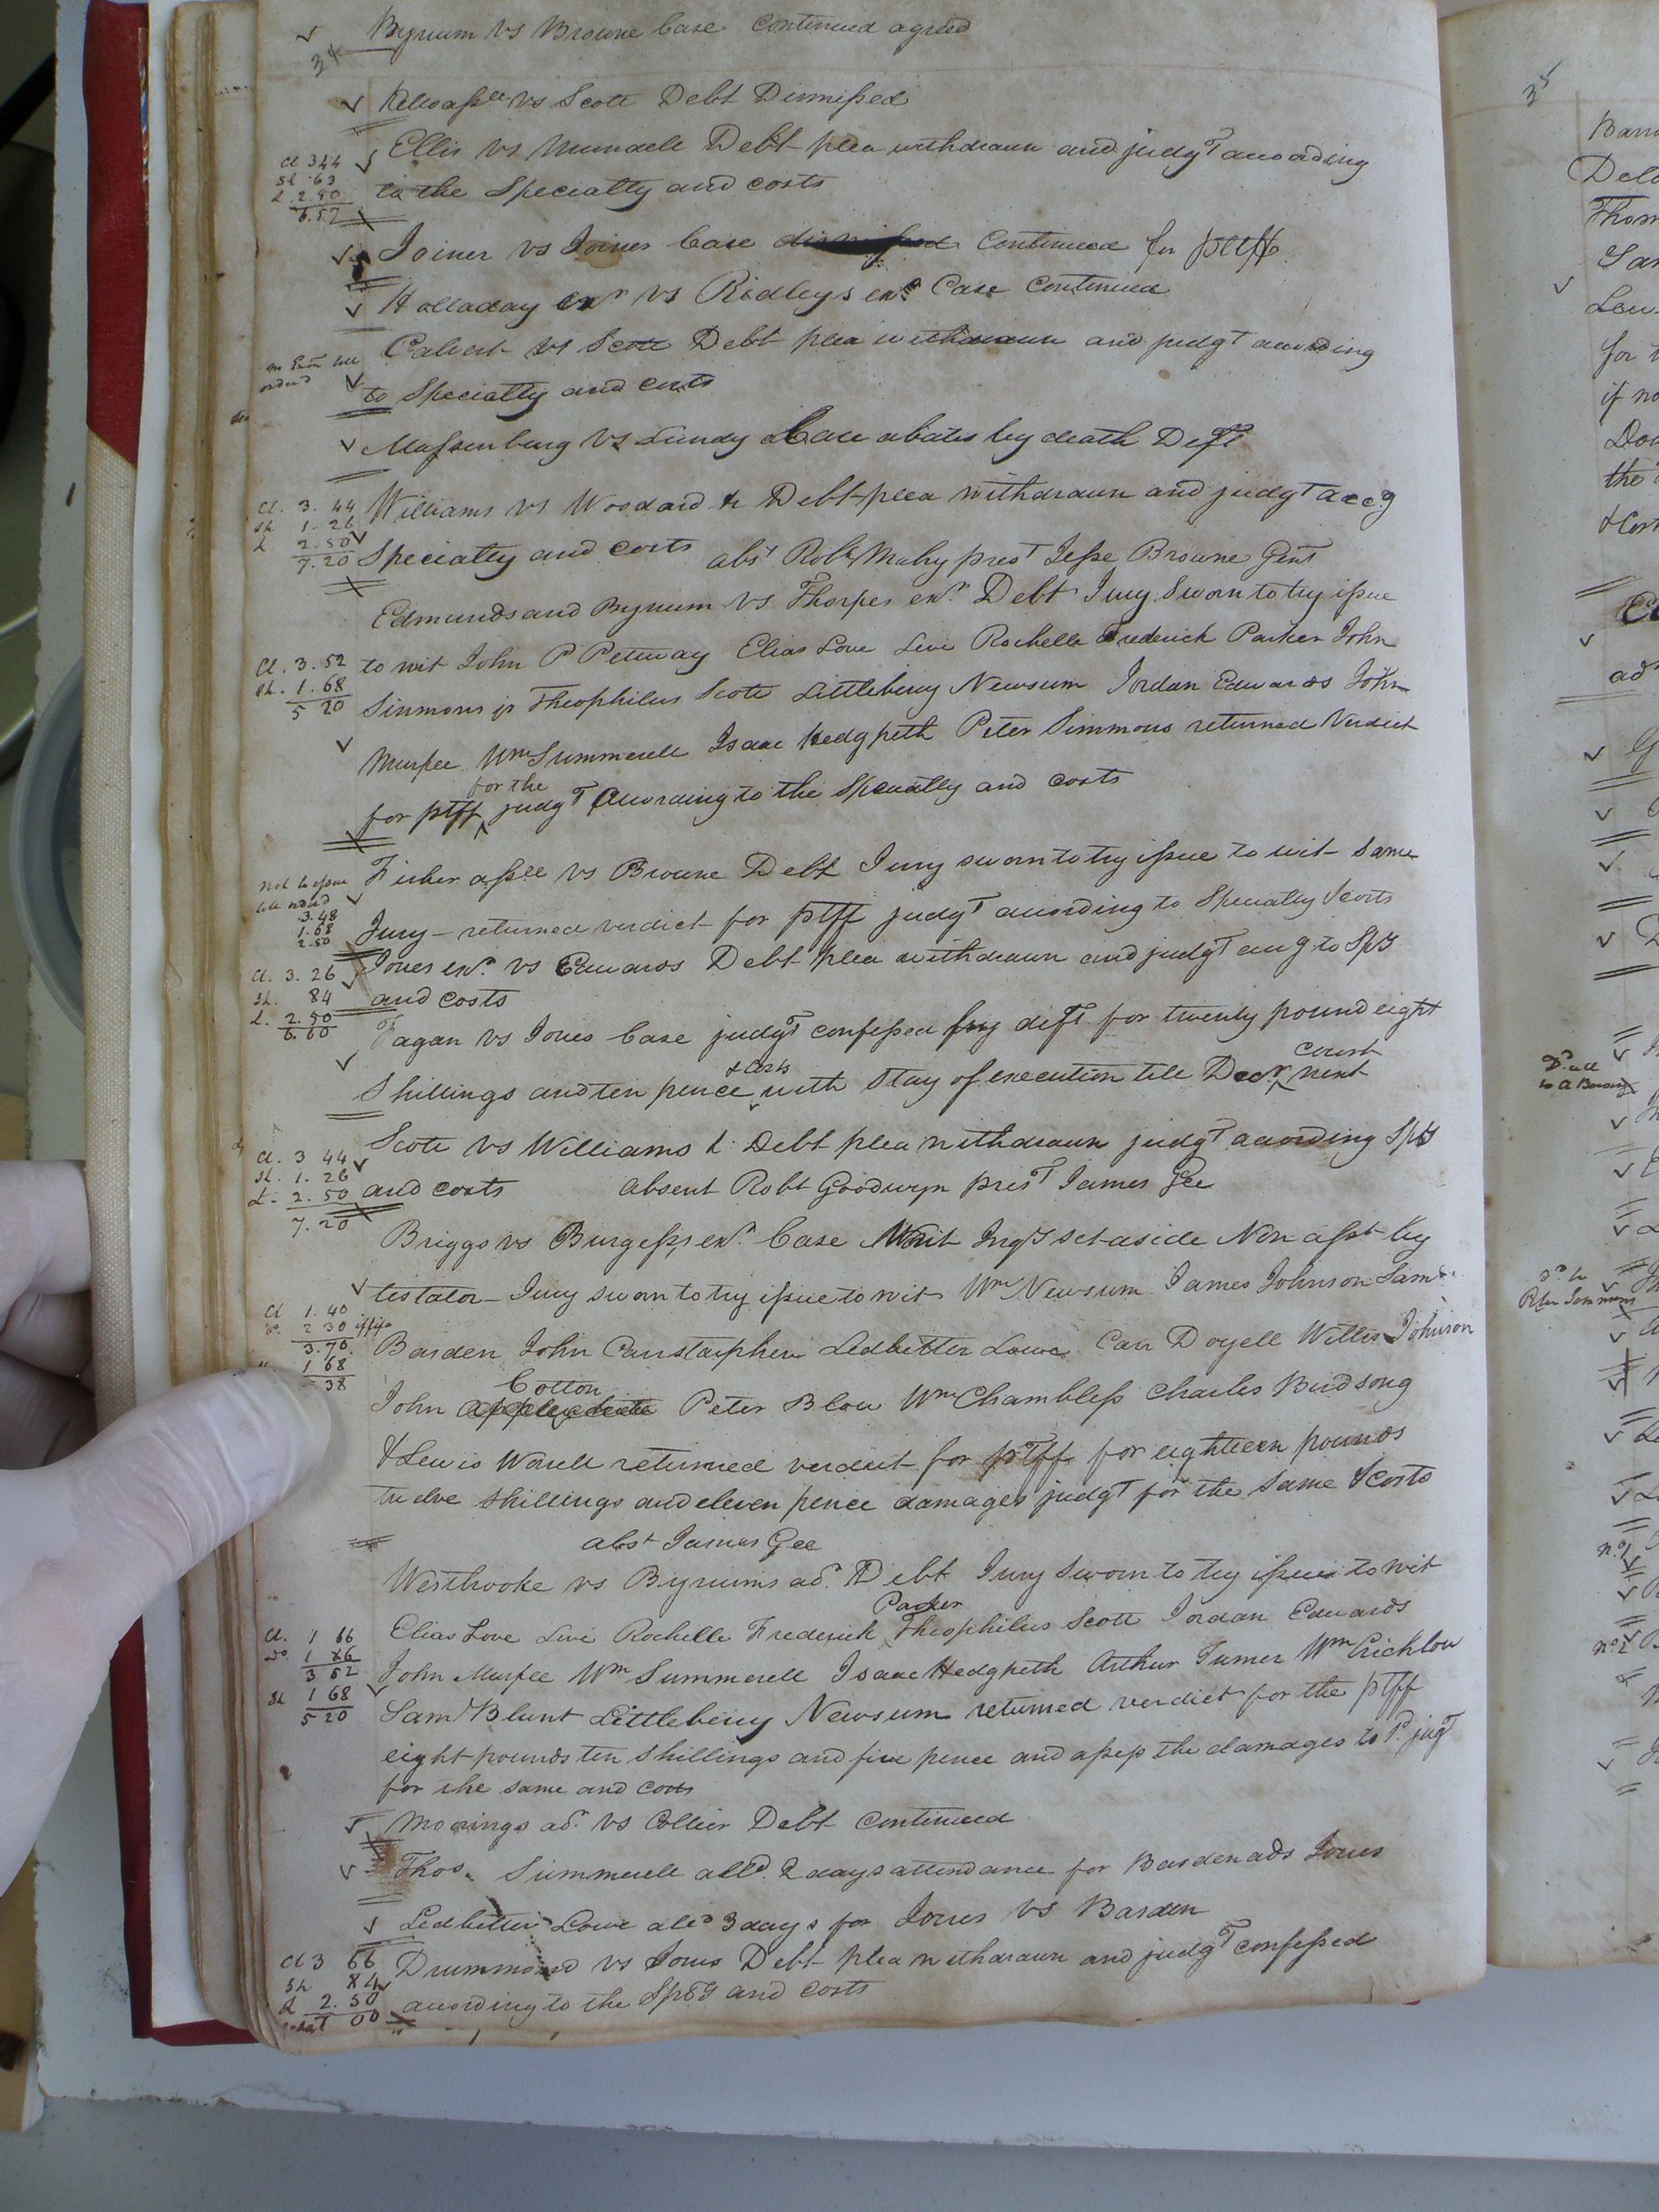 Bynum vs Browne Case Continued agreed
34
assee vs Scott Debt Dismissed
Ellis vs Debt plea withdrawn and judgt according
Cl 3 44
Sh 63
L 2.50
6.57
to the Specialty and costs
Joiner vs Joiner Case dismissed Continued for pltff
Holladay exr vs Ridleys exr Case Continued
Calvert vs Scott Debt plea withdrawn and judgt according
to Specialty and costs
Massenburg vs Lundy Case abates by death Deft
Cl. 3. 44
Sh 1. 26
L 2.50
7.20
Williams vs Woodard &c Debt plea withdrawn and judgt accg
Specialty and costs abst Robt Mabry prest Jesse Browne Gent
Edmunds and Bynum vs Thorpes exr Debt Jury Sworn to try issue
Cl. 3. 52
Sh. 1. 68
5 20
to wit John P Pettway Elias Love Levi Rochelle Frederick Parker John
Simmons jr Theophilus Scott Littlebury Newsum Jordan Edwards John
Murfee Wm Summerell Isaac Hedgpeth Peter Simmons returned Verdict
for the
for ptff judgt According to the Specialty and costs
Not to issue
till
3.48
1.68
2.50
Fisher assee vs Browne Debt Jury sworn to try issue to wit same
Jury returned verdict for ptff judgt according to Specialty & costs
Cl. 3. 26
Sh. 84
L. 2. 50
6. 60
Jones exr vs Edwards Debt plea withdrawn and judgt accg to Spty
and costs
Fagan vs Jones Case judgt confessed by deft for twenty pound eight
& Costs
court
Shillings and ten pence with Stay of execution till Decr next
Cl. 3 44
Sh. 1. 26
L. 2. 50
7. 20
Scott vs Williams & Debt plea withdrawn judgt according Spty
and costs absent Robt Goodwyn prest James Gee
Briggs vs Burgess exr Case Writ Inqy set aside Non asst by
testator Jury sworn to try issue to wit Wm Newsum James Johnson Saml
Cl 1. 40
2 30
3.70
1 68
38
Barden John Ledbetter Lowe Carr Doyell Willis Johnson
Cotton
John Applewhaite Peter Blow Wm Chambless Charles Birdsong
& Lewis Worrell returned verdict for ptff for eighteen pounds
twelve shillings and eleven pence damages judgt for the same & costs
abst James Gee
Westbrooke vs Bynums adr Debt Jury Sworn to try issue to wit
Parker
Cl. 1 66
Do 1 86
3 52
Sh 1 68
5 20
Elias Love Levi Rochelle Frederick Theophilus Scott Jordan Edwards
John Murfee Wm Summerell Isaac Hedgpeth Arthur Turner Wm Crichlow
Saml Blunt Littlebury Newsum returned verdict for the ptff
eight pounds ten shillings and five pence and assess the damages to 1d judgt
for the same and costs
Morings adr vs Collier Debt Continued
Thos. Summerell alld 2 days attendance for Barden ads Jones
Ledbetter Lowe alld 3 days for Jones vs Barden
Cl 3 66
Sh 84
L 2. 50
00
Drummond vs Jones Debt plea withdrawn and judgt confessed
according to the Spty and costs
35